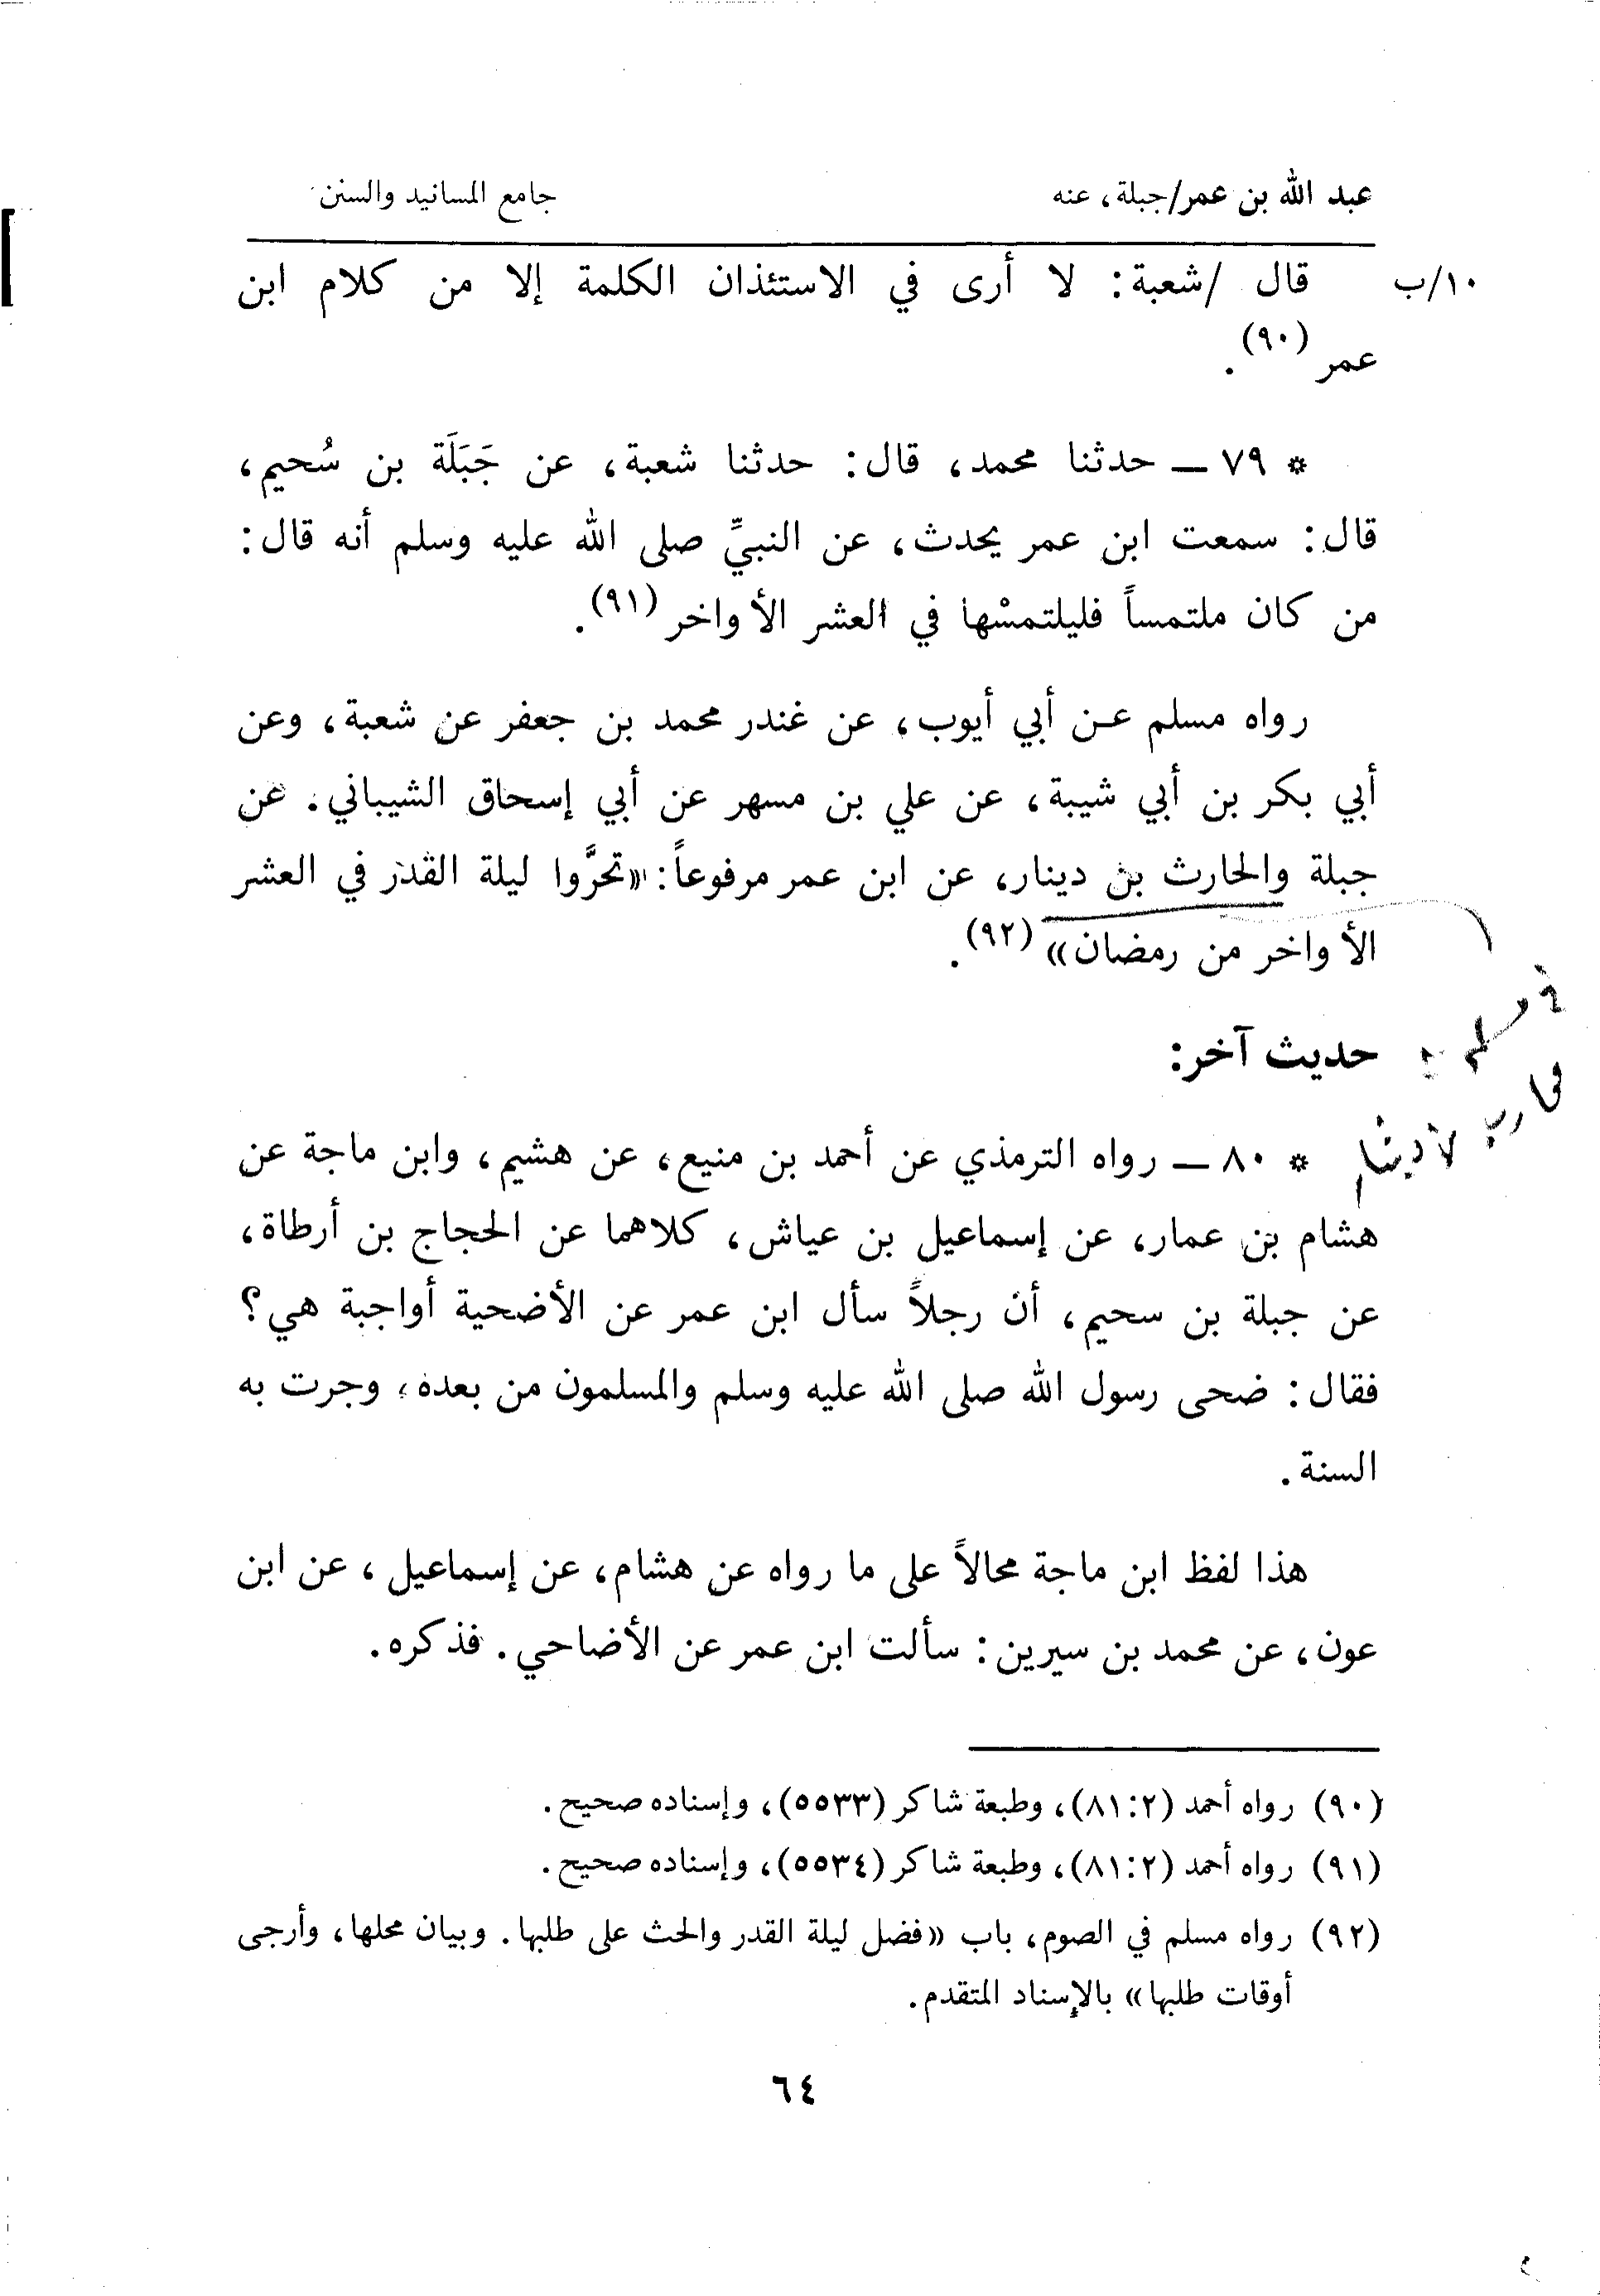 عبد الله بن عمر/جبلة، عنه
جامع المسانيد والسنن
١٠/ب
قال /شعبة: لا أرى في الاستئذان الكلمة إلا من كلام ابن
عمر (٩٠).
* ٧٩ ــ حدثنا محمد، قال: حدثنا شعبة، عن جَبَلَة بن سُحيم،
قال: سمعت ابن عمر يحدث، عن النبيِّ صلى الله عليه وسلم أنه قال:
من كان ملتمساً فليلتمسْها في العشر الأواخر (٩١).
رواه مسلم عن أبي أيوب، عن غندر محمد بن جعفر عن شعبة، وعن
أبي بكر بن أبي شيبة، عن علي بن مسهر عن أبي إسحاق الشيباني. عن
جبلة والحارث بن دينار، عن ابن عمر مرفوعاً: «تحرَّوا ليلة القدر في العشر
الأواخر من رمضان» (٩٢).
في مسلم:
محارب بن دثار
حديث آخر:
* ٨٠ ــ رواه الترمذي عن أحمد بن منيع، عن هشيم، وابن ماجة عن
هشام بن عمار، عن إسماعيل بن عياش، كلاهما عن الحجاج بن أرطاة،
عن جبلة بن سحيم، أن رجلاً سأل ابن عمر عن الأضحية أواجبة هي؟
فقال: ضحى رسول الله صلى الله عليه وسلم والمسلمون من بعده، وجرت به
السنة.
هذا لفظ ابن ماجة محالاً على ما رواه عن هشام، عن إسماعيل، عن ابن
عون، عن محمد بن سيرين: سألت ابن عمر عن الأضاحي. فذكره.
(٩٠) رواه أحمد (٨١:٢)، وطبعة شاكر (٥٥٣٣)، وإسناده صحيح.
(٩١) رواه أحمد (٨١:٢)، وطبعة شاكر (٥٥٣٤)، وإسناده صحيح.
(٩٢) رواه مسلم في الصوم، باب «فضل ليلة القدر والحث على طلبها. وبيان محلها، وأرجى
أوقات طلبها» بالإسناد المتقدم.
٦٤